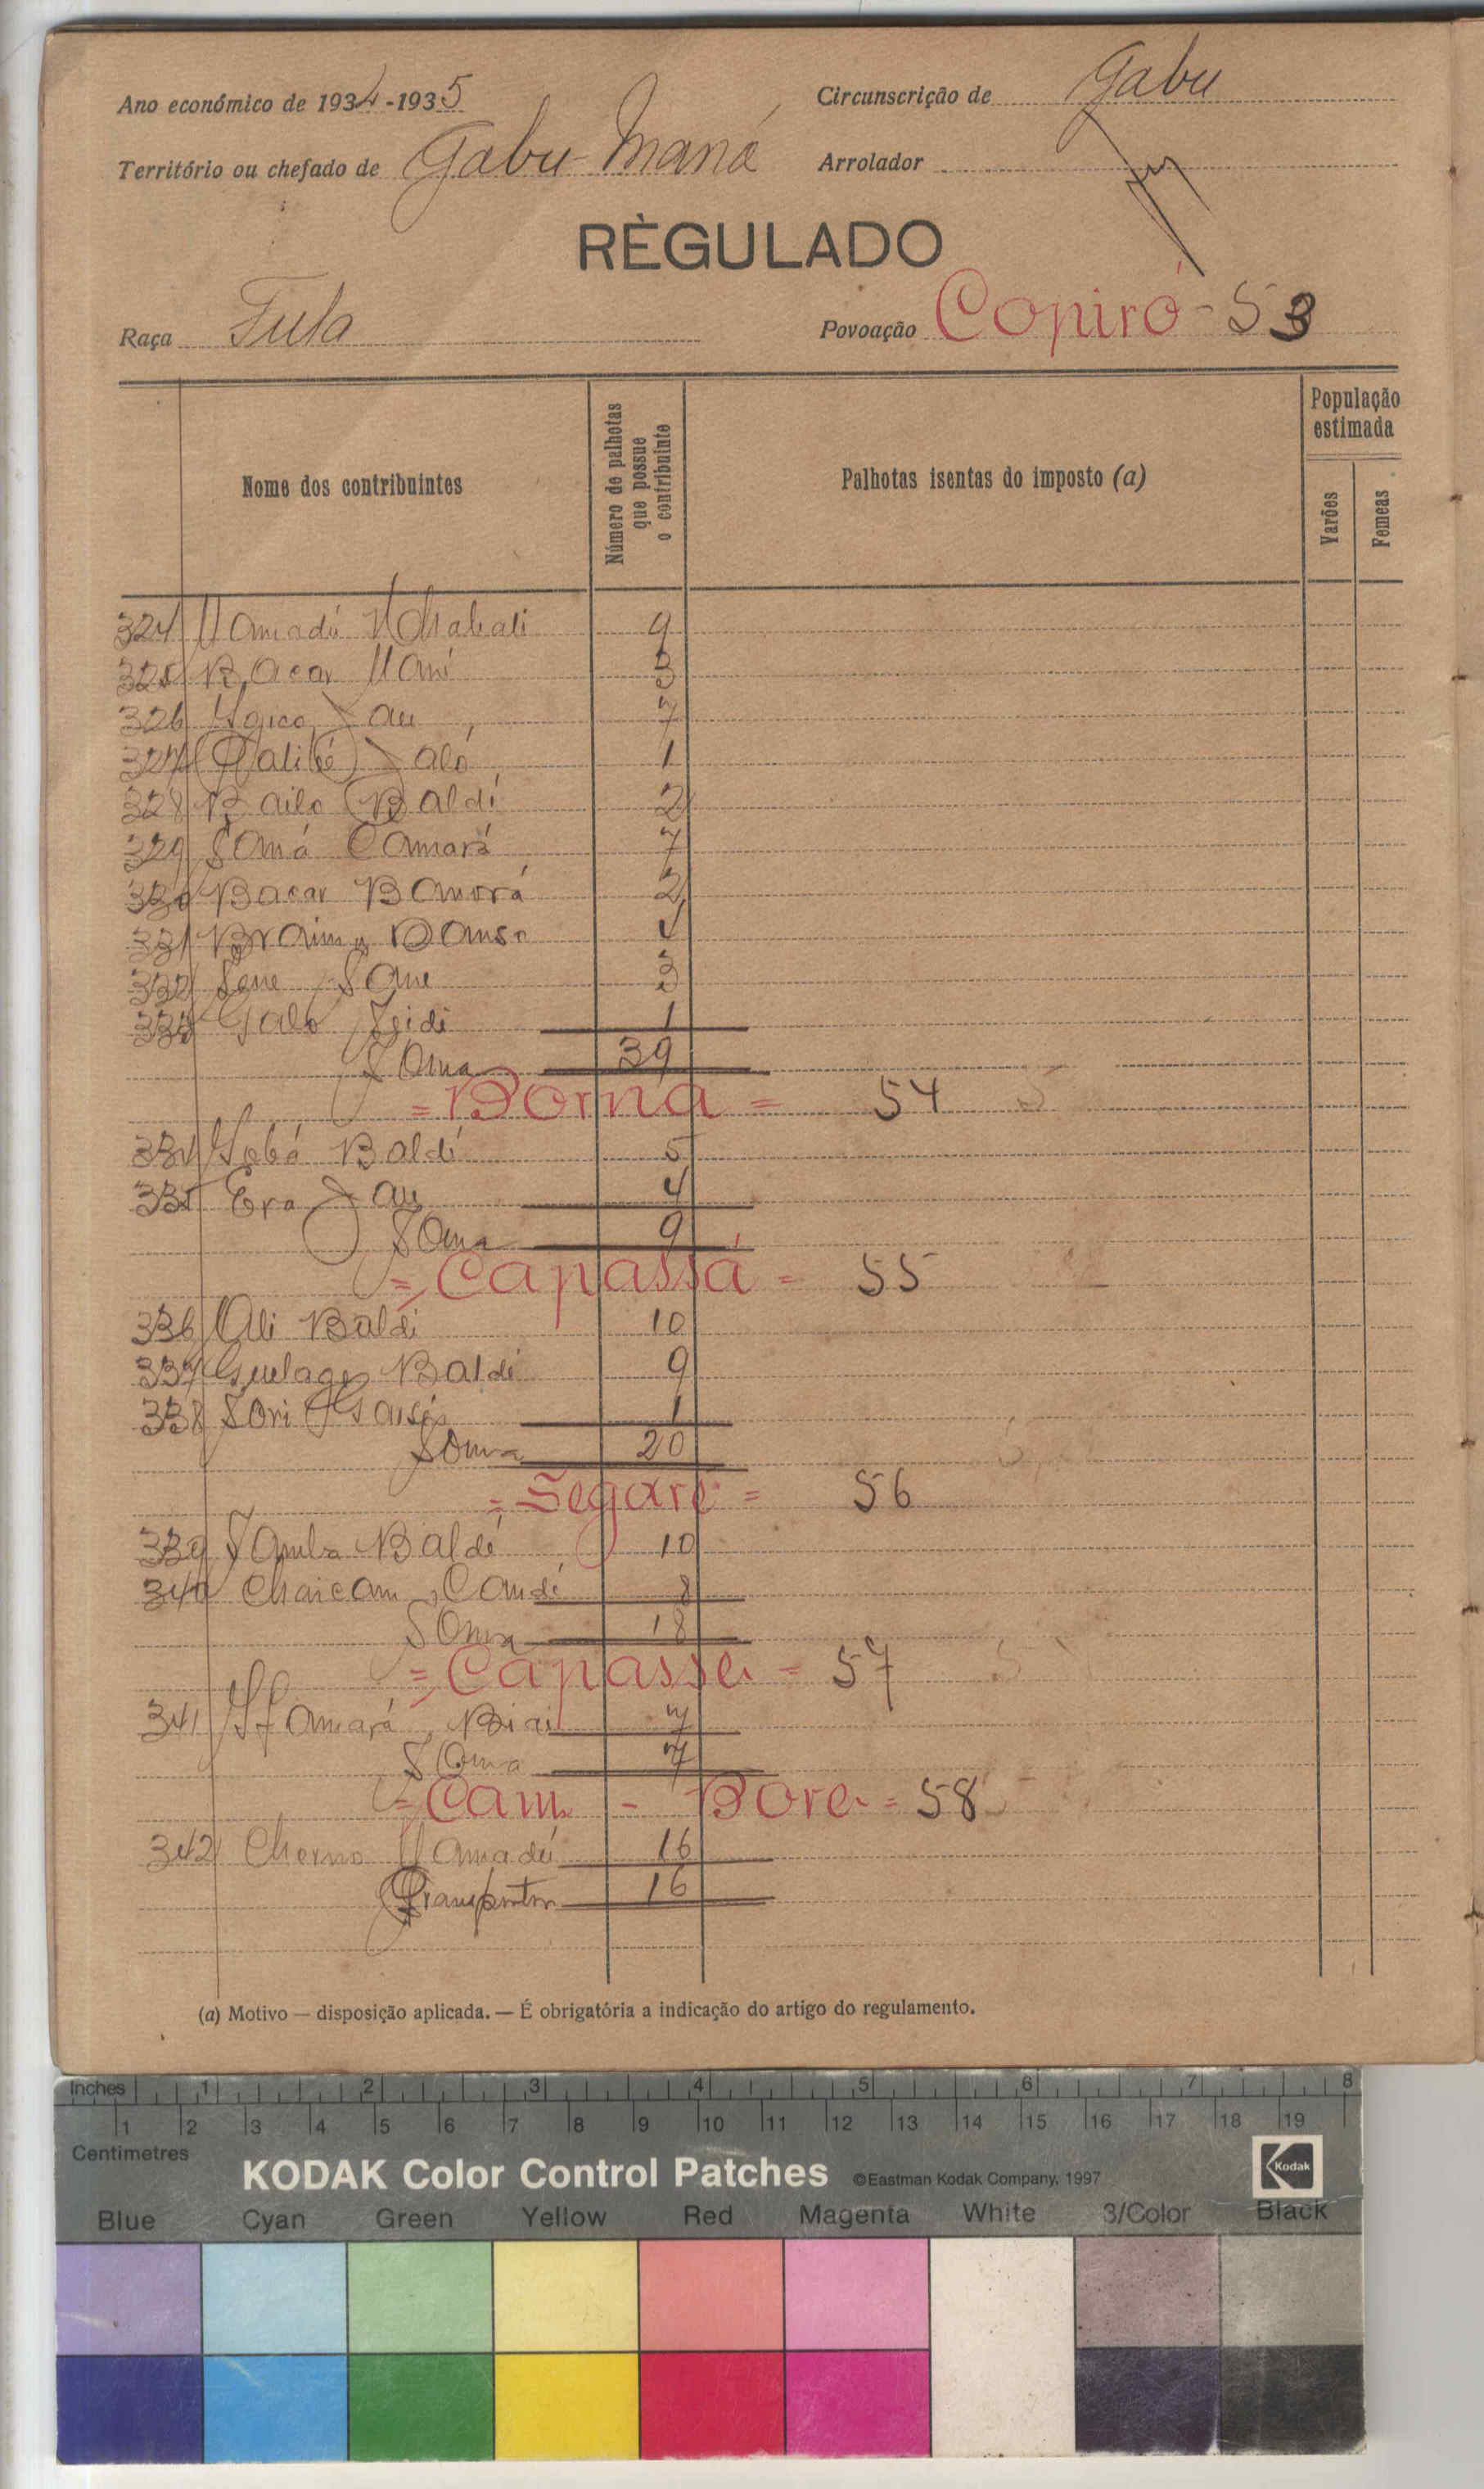 Ano económico de 1934-1935
Circunscrição de Gabu
Território ou chefado de Gabu Maná
Arrolador
RÈGULADO
Raça Fula
Povoação Copiró - 53
Nome dos contribuintes
Número de palhotas que possue o contribuinte
Palhotas isentas do imposto (a)
População estimada
Varões
Femeas
324 Mamadú 9
325 Bacar Mané 3
326 Jau 7
327 Jaló 1
328 Bailo Baldé 2
329 Samá Camará 7
330 Bacar Bamorá 2
331 Braima Danso 4
332 Sene Sane 3
333 Galo Seidi 1
Soma 39
= Borna = 54
334 Baldé 5
335 Era Jau 4
Soma 9
= Capassá = 55
336 Ali Baldé 10
337 Baldé 9
338 Sori 1
Soma 20
= Segaré = 56
339 Samba Baldé 10
340 Candé 8
Soma 18
= Capasse = 57
341 Biai 7
Soma 7
= Cam - Bore = 58
342 Cherno Mamadú 16
16
(a) Motivo — disposição aplicada. — É obrigatória a indicação do artigo do regulamento.
Inches 1 2 3 4 5 6 7 8
1 2 3 4 5 6 7 8 9 10 11 12 13 14 15 16 17 18 19
Centimetres
KODAK Color Control Patches ©Eastman Kodak Company, 1997 Kodak
Blue Cyan Green Yellow Red Magenta White 3/Color Black